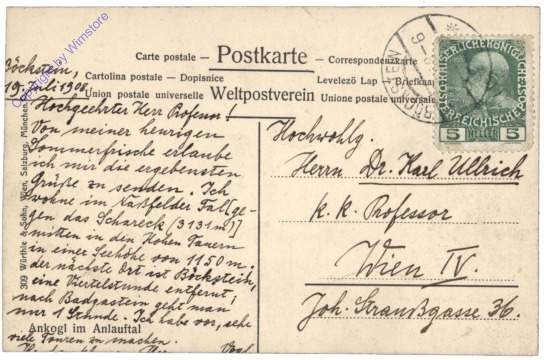 Copyright by Wimstore
Carte postale — Postkarte — Correspondenzkarte
Cartolina postale – Dopisnice
Levelező Lap –
Union postale universelle Weltpostverein Unione postale universale
5 HELLER 5
Böckstein,
19. Juli 1908
Hochgeehrter Herr Professor!
Von meiner heurigen
Sommerfrische erlaube
ich mir die ergebensten
Grüße zu senden. Ich
wohne im Naßfelder Tal [ge-
gen das Schareck (3131 m)]
mitten in den Hohen Tauern
in einer Seehöhe von 1150 m;
der nächste Ort ist Böckstein,
eine Viertelstunde entfernt;
nach Badgastein geht man
nur 1 Stunde. Ich habe vor, sehr
viele Touren zu machen.
Hochwohlg.
Herrn Dr. Karl Ullrich
k. k. Professor
Wien IV.
Joh. Straußgasse 36.
Ankogl im Anlauftal
309 Würthle & Sohn, Wien, Salzburg, München.